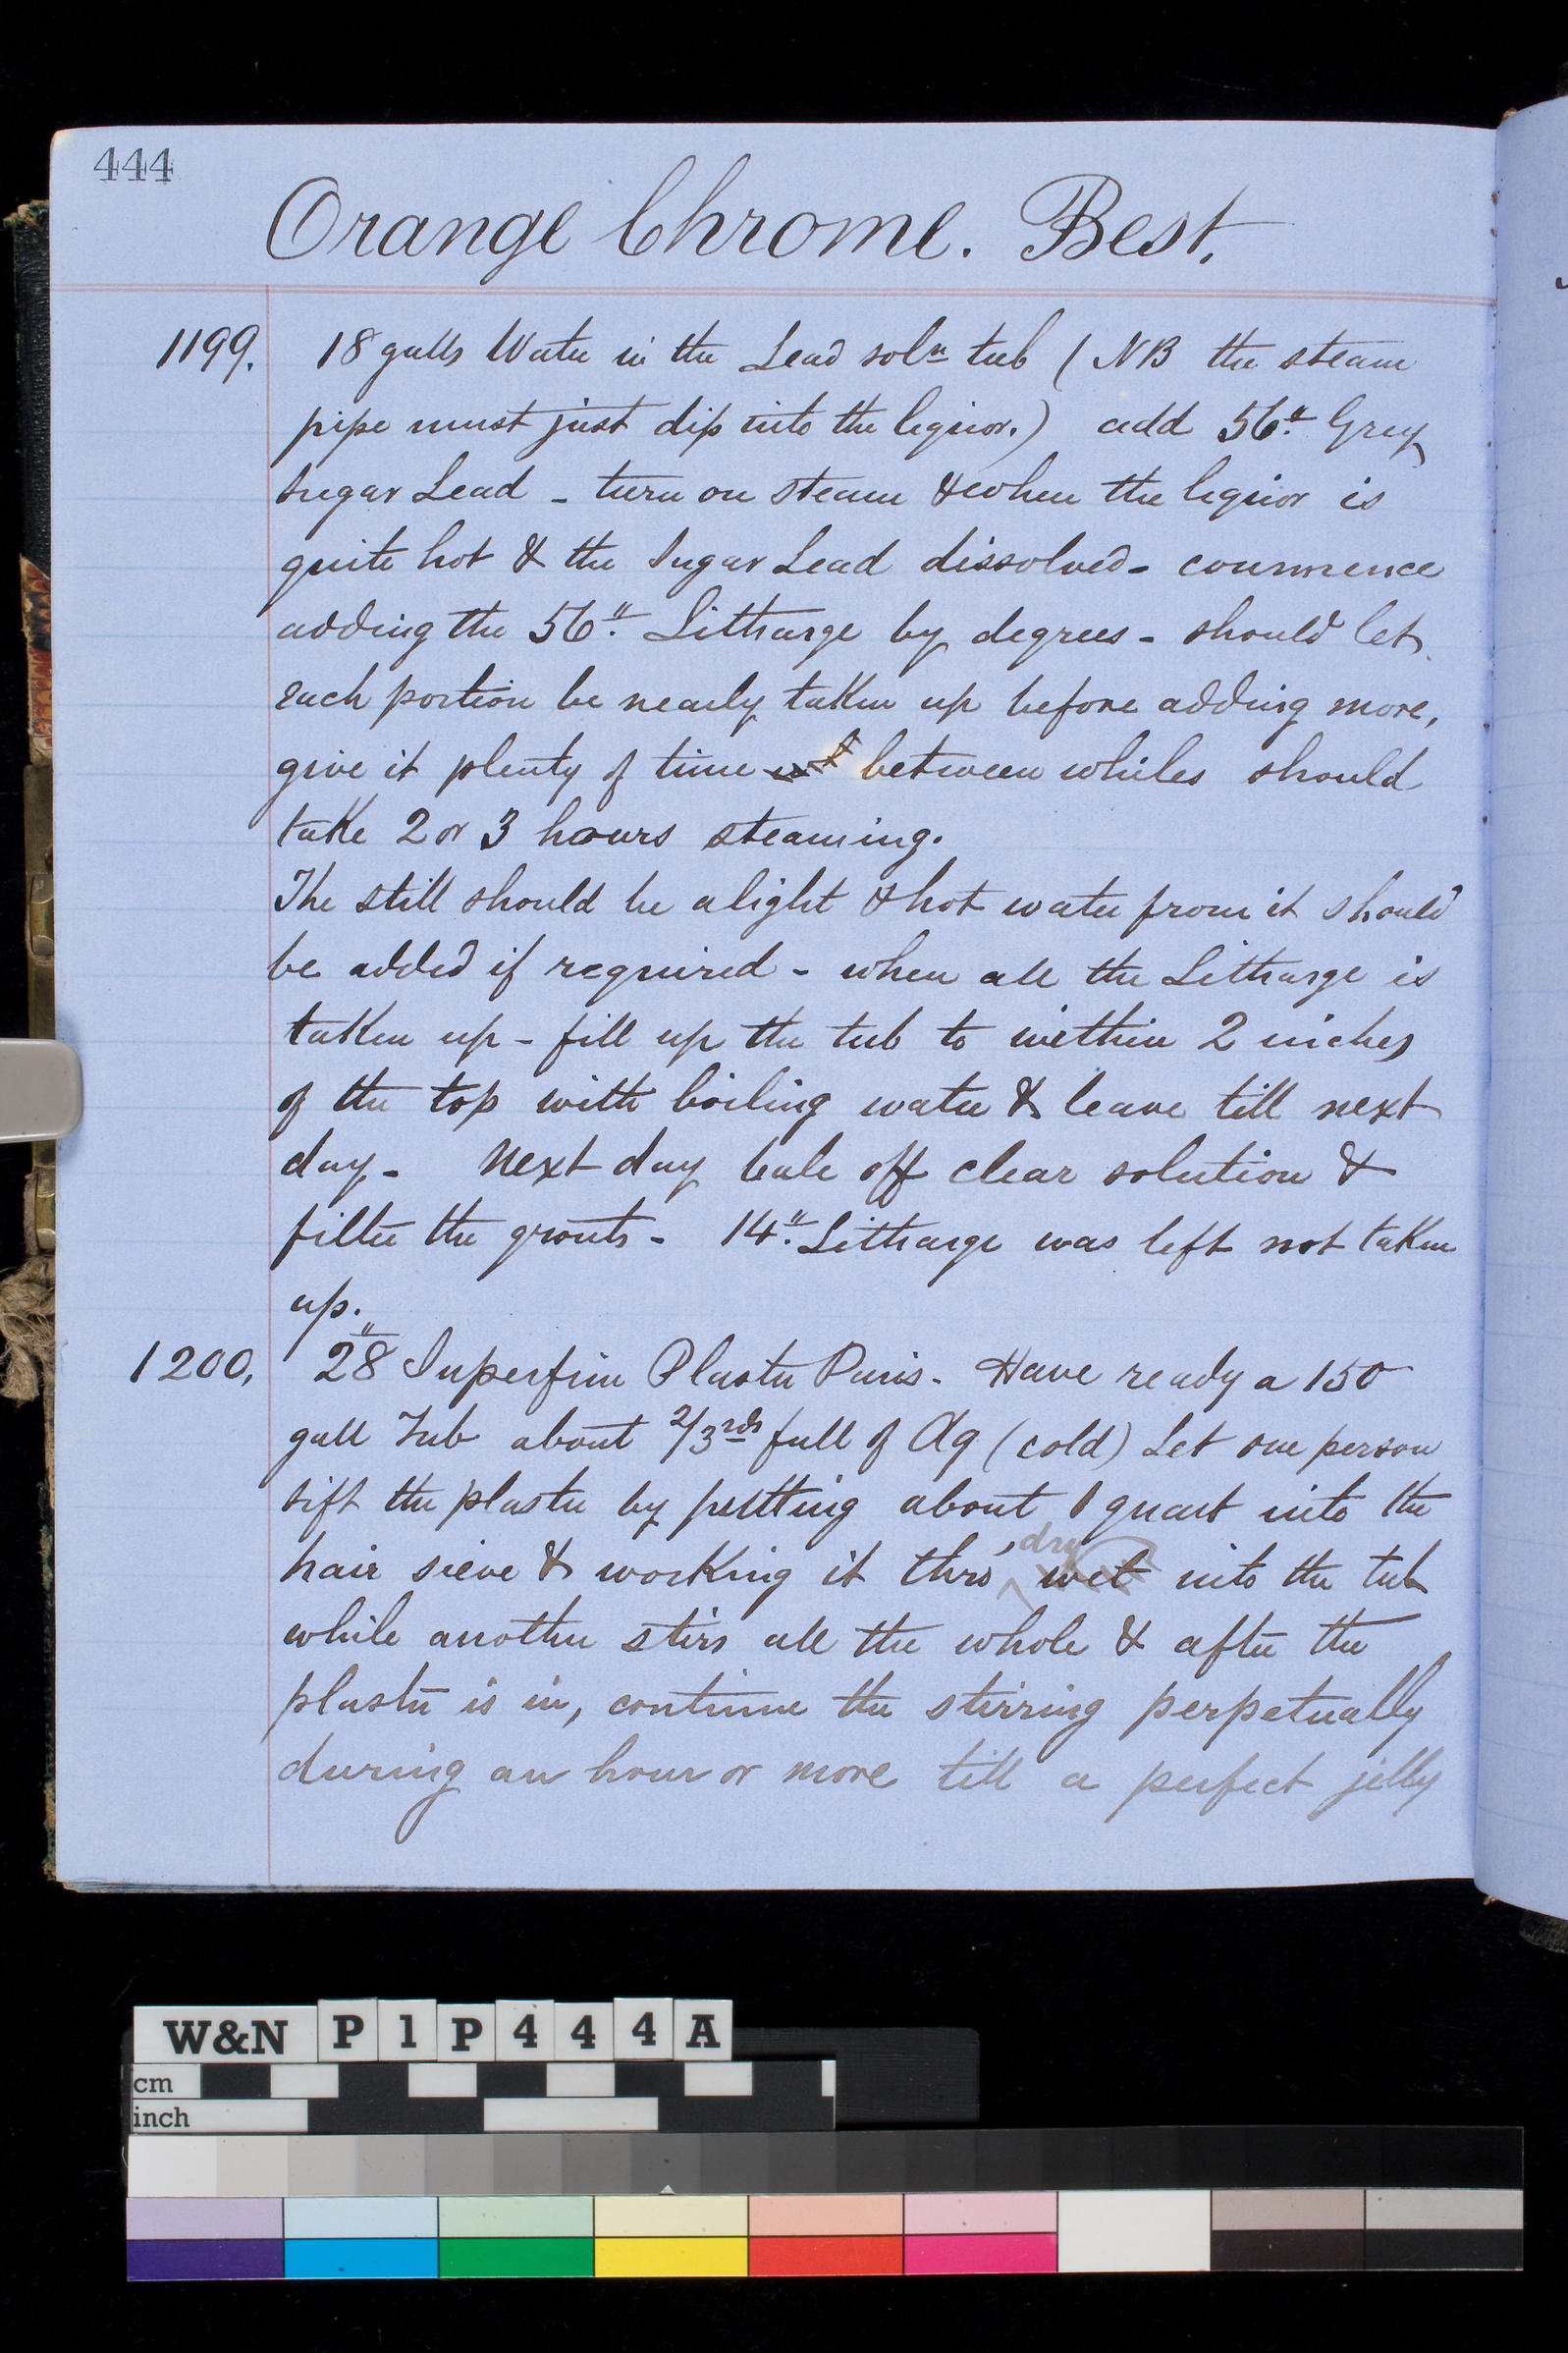 444
Orange Chrome. Best.
1199. 18 galls Water in the Lead soln tub (NB the steam
pipe must just dip into the liquor.) add 56" Grey
Sugar Lead - turn on steam & when the liquor is
quite hot & the Sugar Lead dissolved - commence
adding the 56" Litharge by degrees - should let
each portion be nearly taken up before adding more,
give it plenty of time between whiles should
take 2 or 3 hours steaming.
The still should be alight & hot water from it should
be added if required - when all the Litharge is
taken up - fill up the tub to within 2 inches
of the top with boiling water & leave till next
day - Next day bale off clear solution &
filter the grouts - 14" Litharge was left not taken
up.
1200. 28" Superfine Plaster Paris. Have ready a 150
gall Tub about 2/3rds full of Aq (cold) Let one person
sift the plaster by putting about 1 quart into the
dry
hair sieve & working it thro' wet into the tub
while another stirs all the whole & after the
plaster is in, continue the stirring perpetually
during an hour or more till a perfect jelly
W&N P1P444A
cm
inch